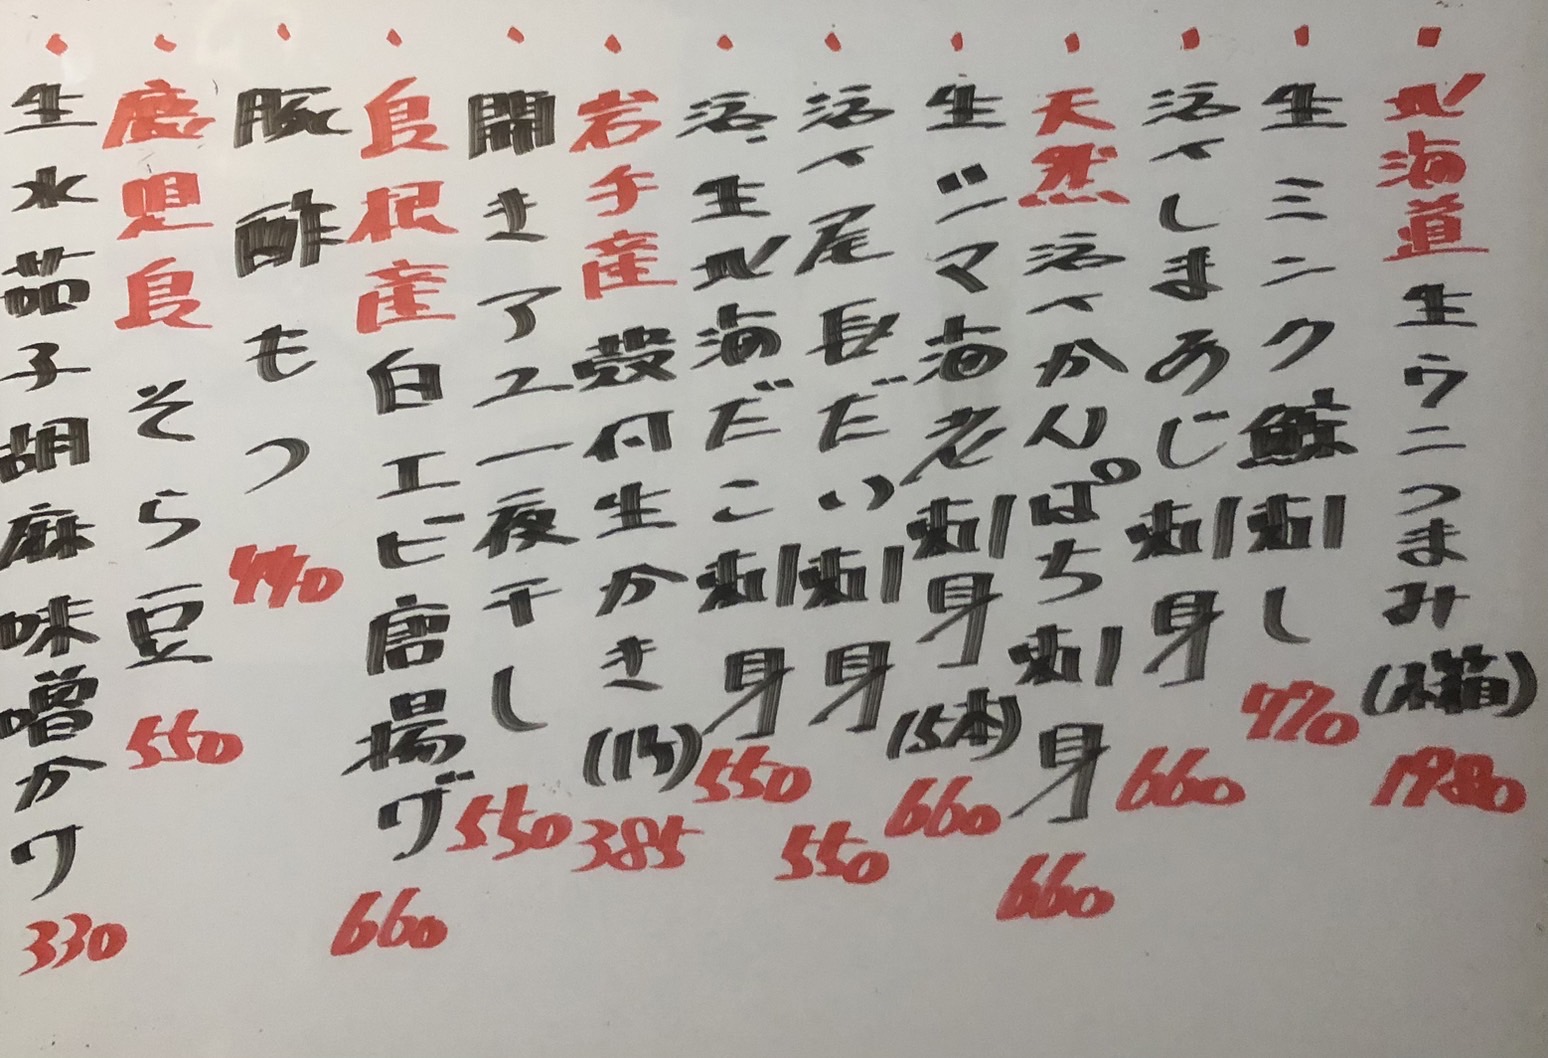 ・北海道生ウニつまみ(木箱)1980
・生ミンク鯨刺し770
・活〆しまあじ刺身660
・天然活〆かんぱち刺身660
・生シマ海老刺身(5本)660
・活〆尾長だい刺身550
・活生北海だこ刺身550
・岩手産殻付生かき(1ケ)385
・開きアユ一夜干し550
・島根産白エビ唐揚げ660
・豚酢もつ440
・鹿児島そら豆550
・生水茄子胡麻味噌かけ330